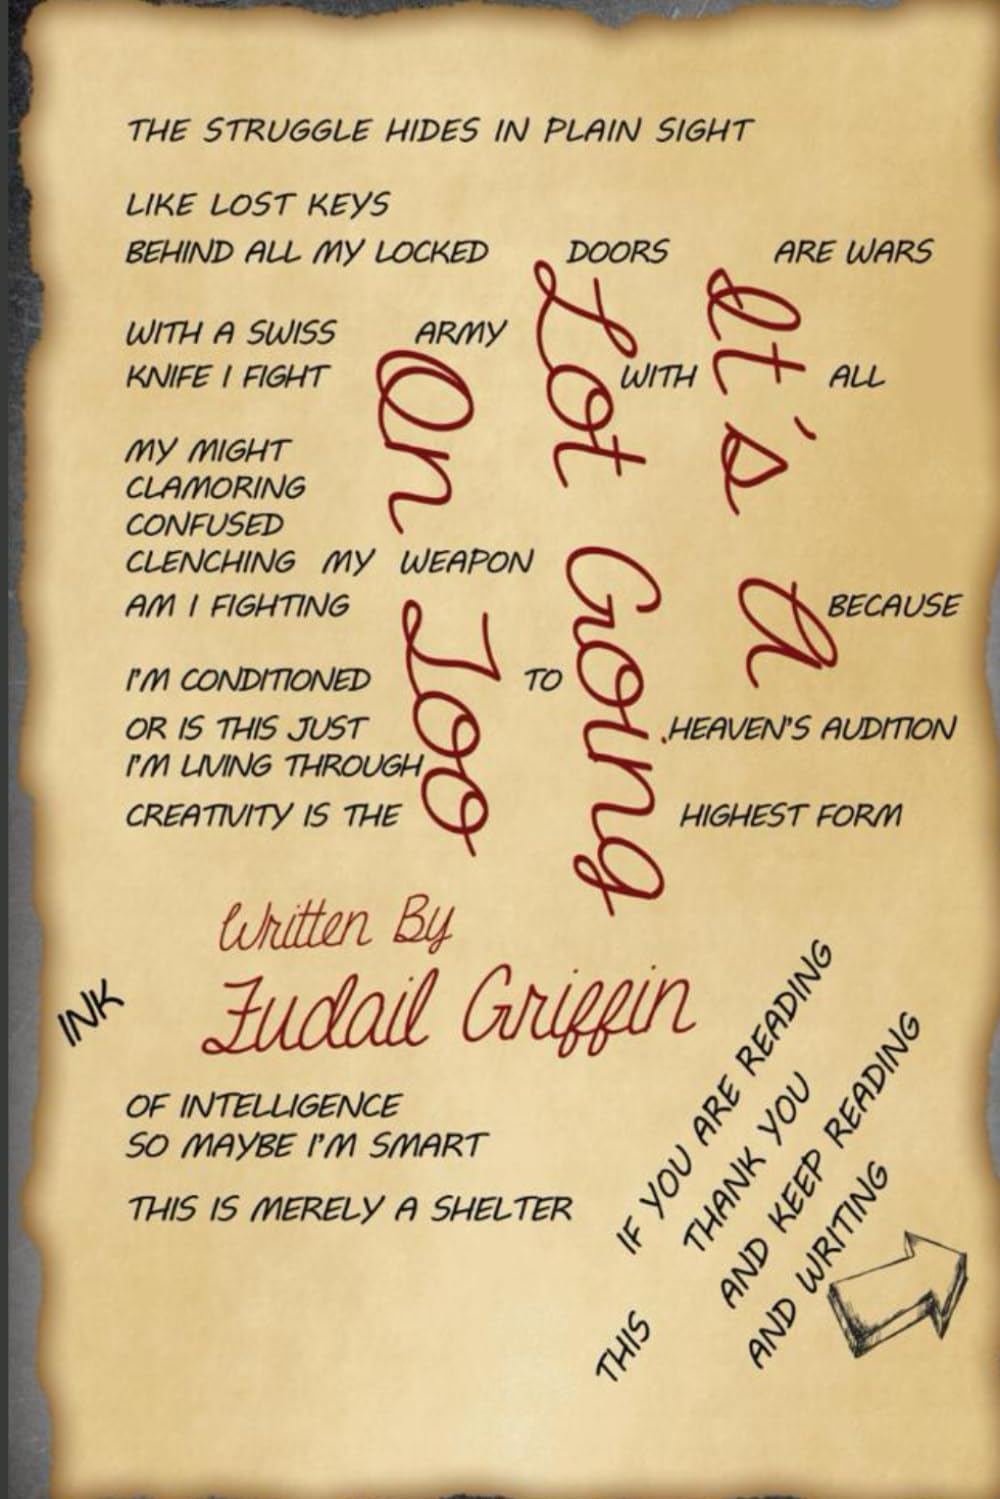 THE STRUGGLE HIDES IN PLAIN SIGHT
LIKE LOST KEYS
BEHIND ALL MY LOCKED DOORS ARE WARS
WITH A SWISS ARMY
KNIFE I FIGHT WITH ALL
MY MIGHT
CLAMORING
CONFUSED
CLENCHING MY WEAPON
AM I FIGHTING BECAUSE
I'M CONDITIONED TO
OR IS THIS JUST HEAVEN'S AUDITION
I'M LIVING THROUGH
CREATIVITY IS THE HIGHEST FORM
It's A
Lot Going
On Too
Written By
Fudail Griffin
INK
OF INTELLIGENCE
SO MAYBE I'M SMART
THIS IS MERELY A SHELTER
THIS IF YOU ARE READING
THANK YOU
AND KEEP READING
AND WRITING